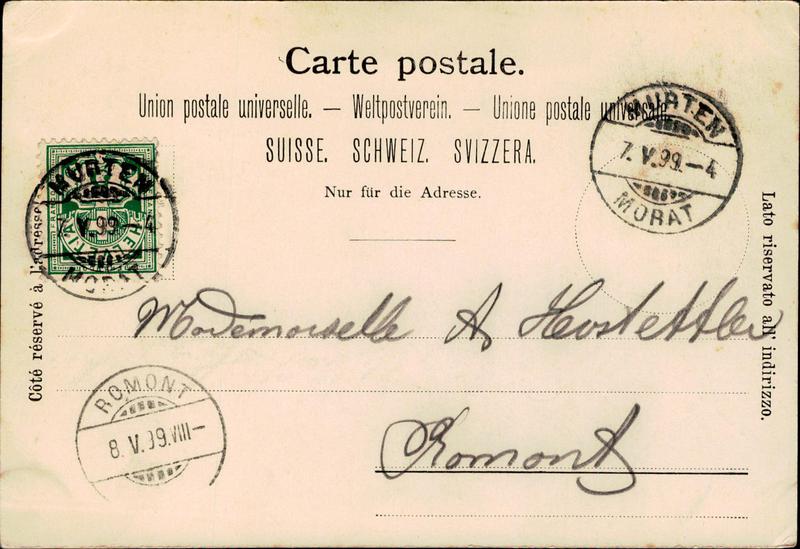 Carte postale.
Union postale universelle. — Weltpostverein. — Unione postale universale.
SUISSE. SCHWEIZ. SVIZZERA.
Nur für die Adresse.
MURTEN
7. V. 99. – 4
MORAT
MURTEN
7. V. 99. – 4
MORAT
HELVETIA
Côté réservé à l'adresse
Lato riservato all' indirizzo.
Mademoiselle A. Hostettler
Romont
ROMONT
8. V. 99. VIII –